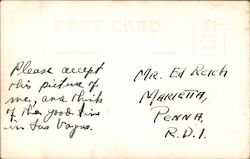 POST CARD
Please accept
this picture of
me, and think
of the good time
in Las Vegas.
Mr. Ed Reich
Marietta,
Penna,
R.D.1